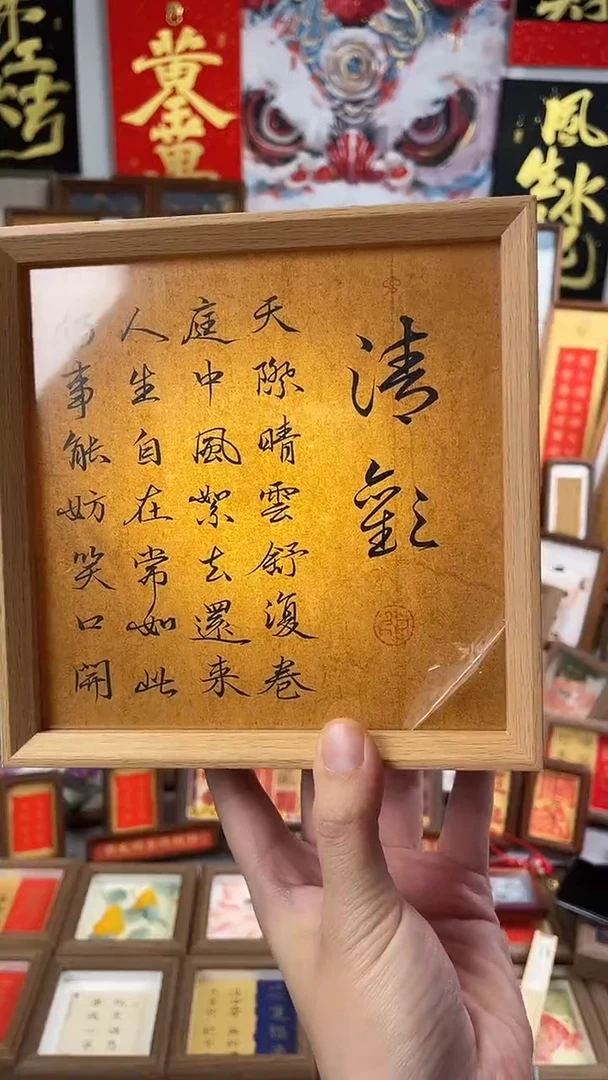 清歡
天際晴雲舒復卷
庭中風絮去還来
人生自在常如此
何事能妨笑口開
黄金
風生水